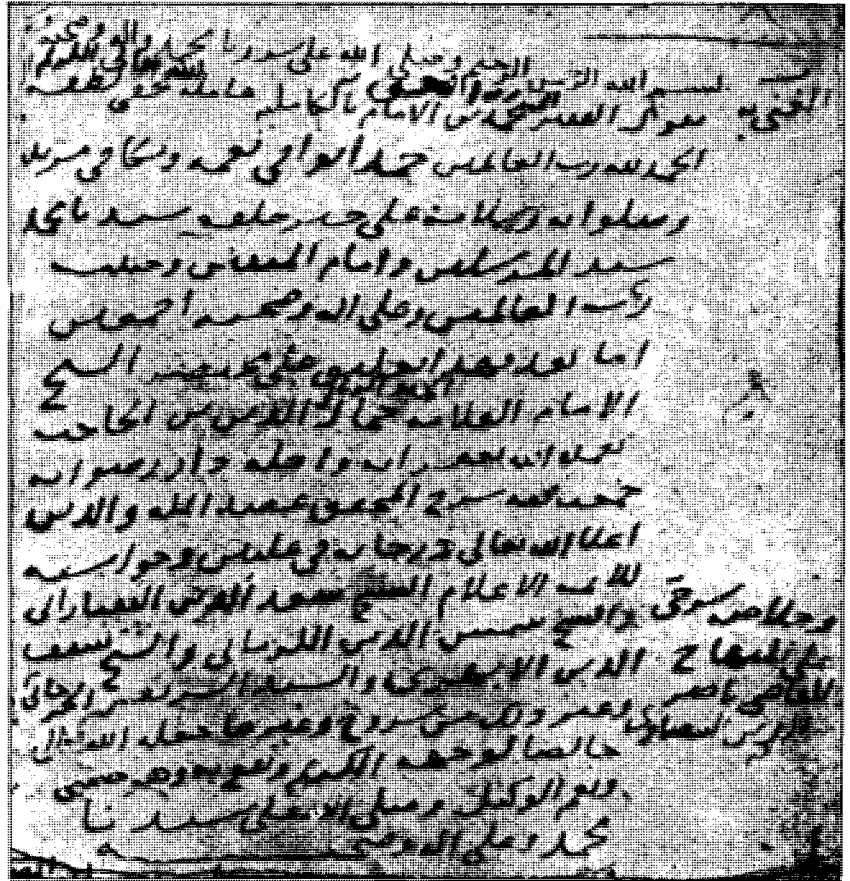 بسم الله الرحمن الرحيم وصلى الله على سيدنا محمد وآله وصحبه
يقول الفقير محمد بن الامام بالكامليه عامله بخفي لطفه
الحمد لله رب العالمين حمدا يوافي نعمه ويكافي مزيده
وصلواته وسلامه على خير خلقه سيدنا محمد
سيد المرسلين وامام المتقين وحبيب
رب العالمين وعلى اله وصحبه اجمعين
اما بعد فهذا تعليق على مختصر الشيخ
الامام العلامه جمال الدين بن الحاجب
تغمده الله بغفرانه واحله دار رضوانه
جمعته من شرح المحقق عضد المله والدين
اعلا الله تعالى درجاته في عليين وحواشيه
للائمه الاعلام الشيخ سعد الدين التفتازاني
والشيخ شمس الدين الكرماني والشيخ سيف
الدين الابهري والسيد الشريف الجرجاني
وغير ذلك من شروح وغيرها جعله الله تعالى
خالصا لوجهه الكريم ونفع به وهو حسبي
ونعم الوكيل وصلى الله على سيدنا
محمد وعلى اله وصحبه
للقاضي ناصر
الدين البيضاوي